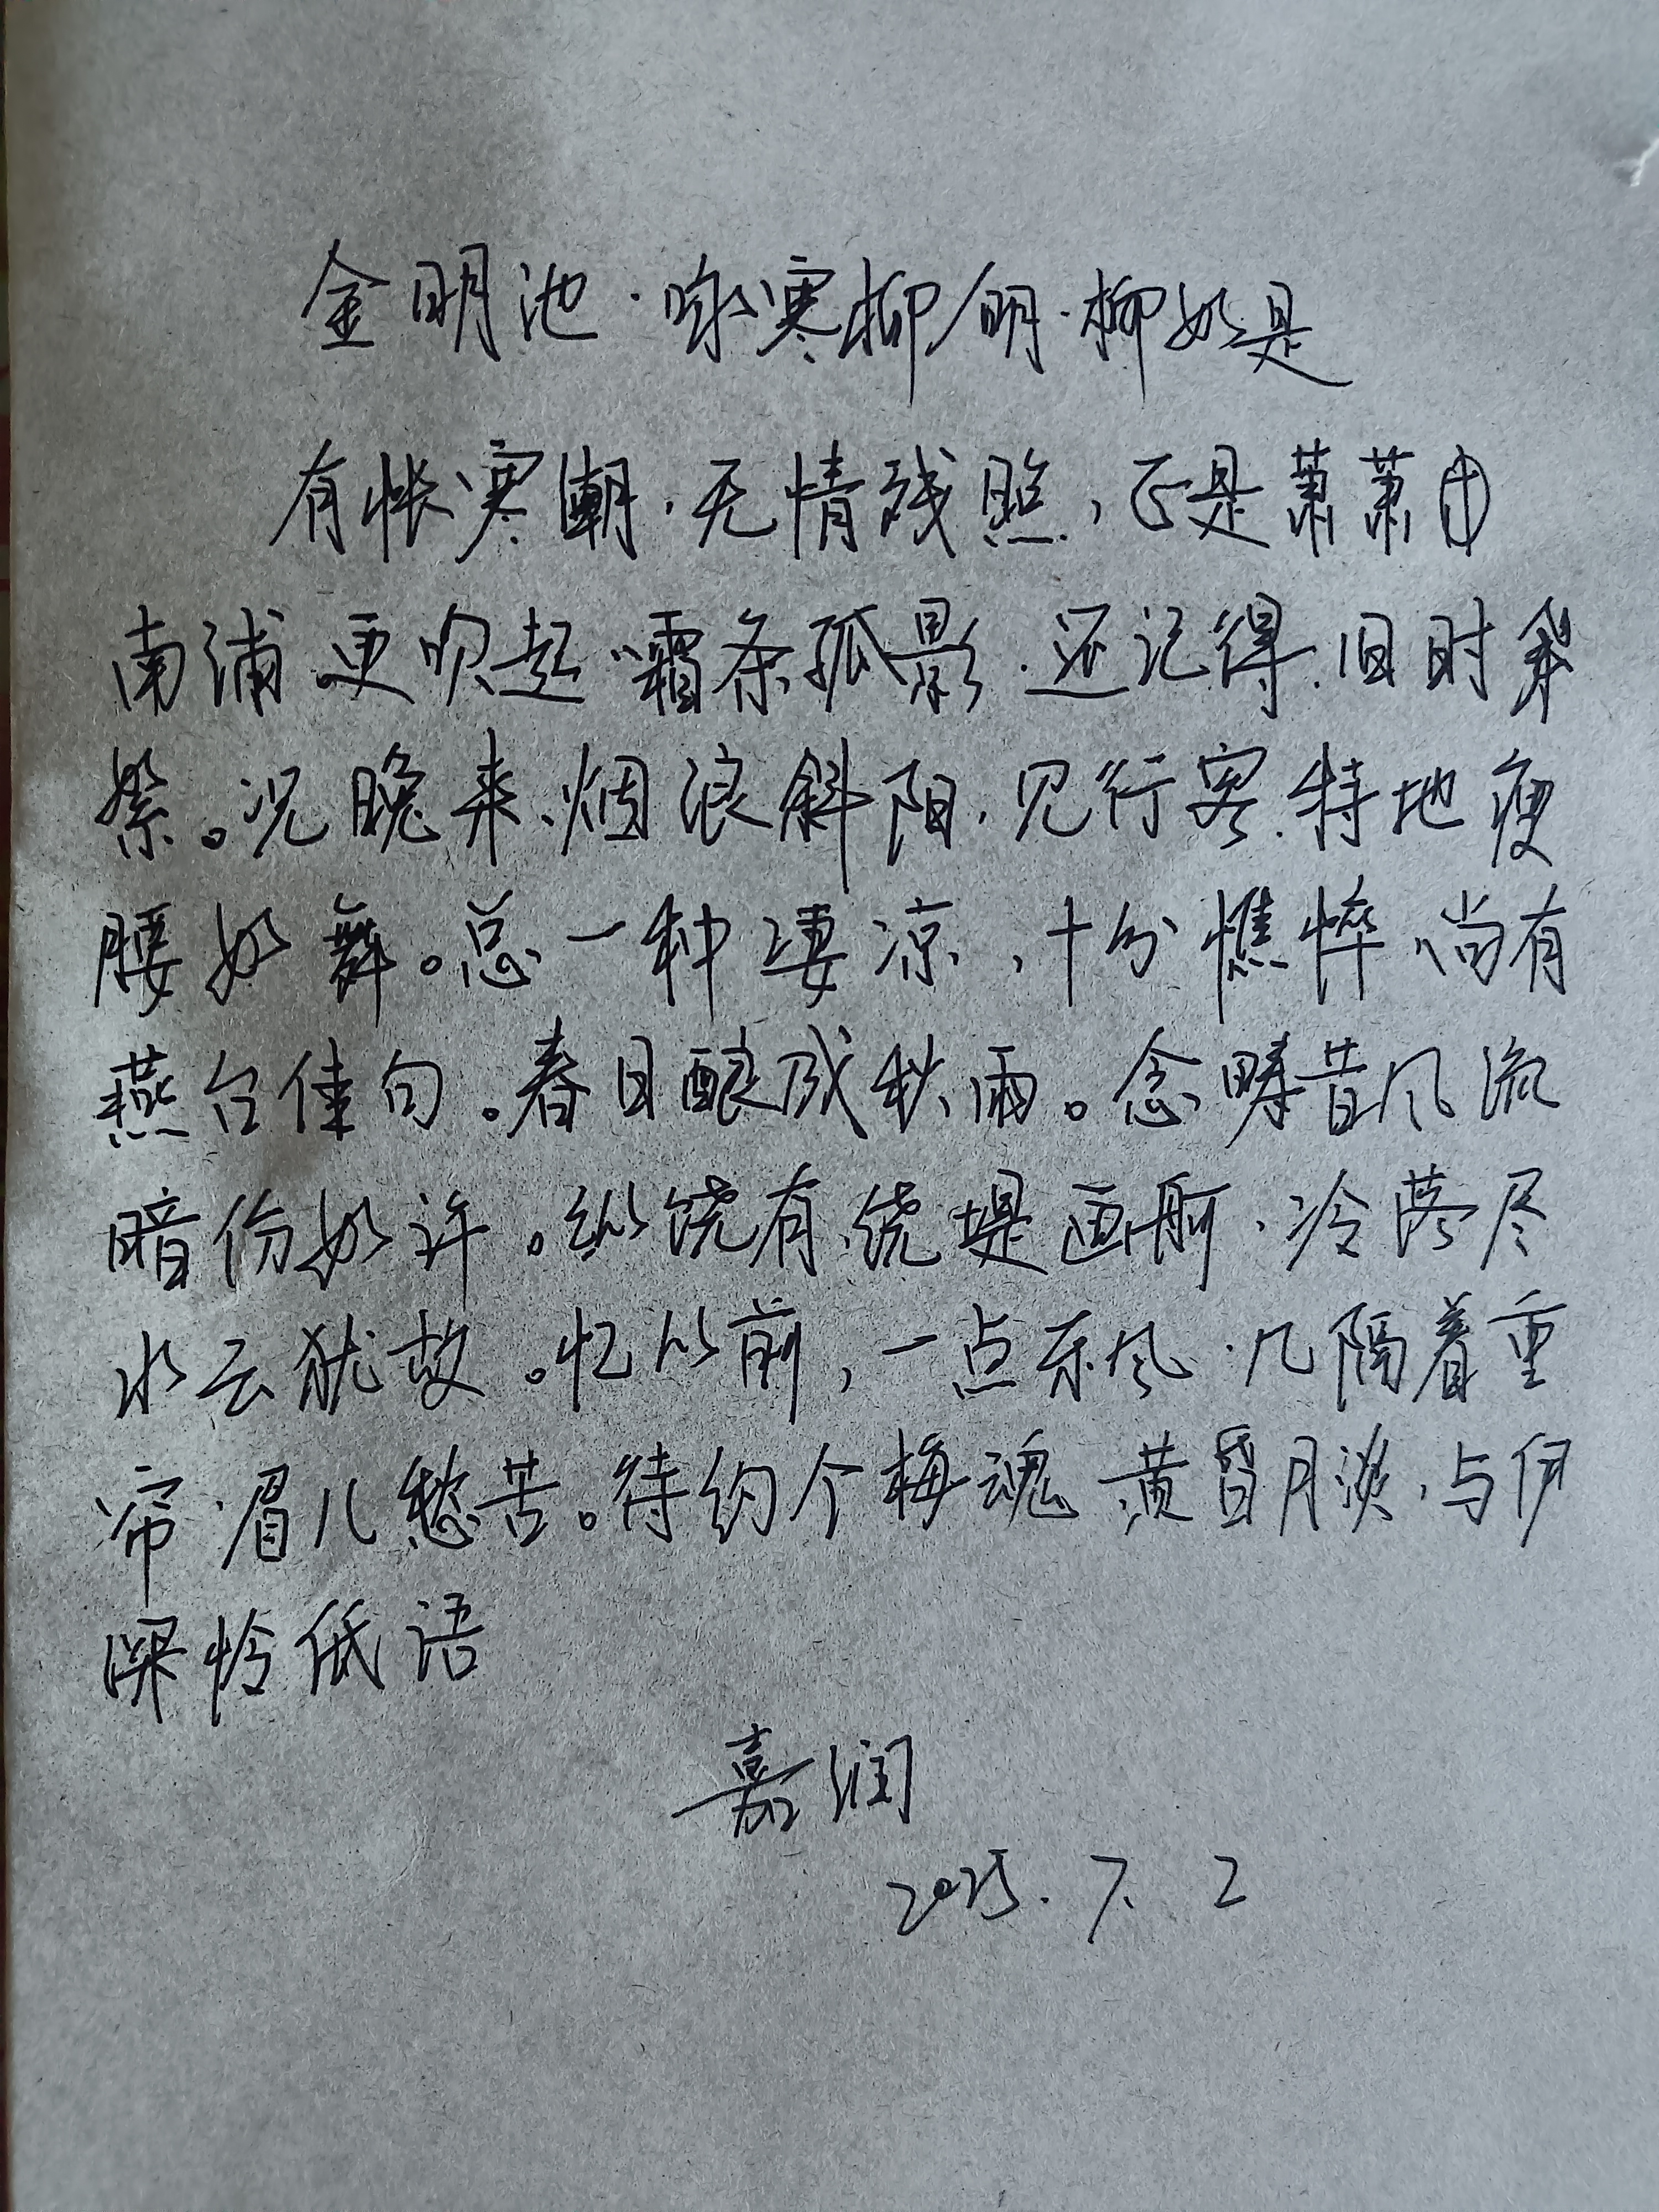 金明池·咏寒柳/明·柳如是
有怅寒潮,无情残照,正是萧萧
南浦更吹起霜条孤影.还记得.旧时飞
絮。况晚来、烟浪斜阳,见行客.特地瘦
腰如舞。总一种凄凉,十分憔悴尚有
燕台佳句。春日酿成秋雨。念畴昔风流
暗伤如许。纵饶有.绕堤画舸.冷落尽
水云犹故。忆从前,一点东风.几隔着重
帘眉儿愁苦。待约个梅魂黄昏月淡,与伊
深怜低语
嘉润
2025.7.2